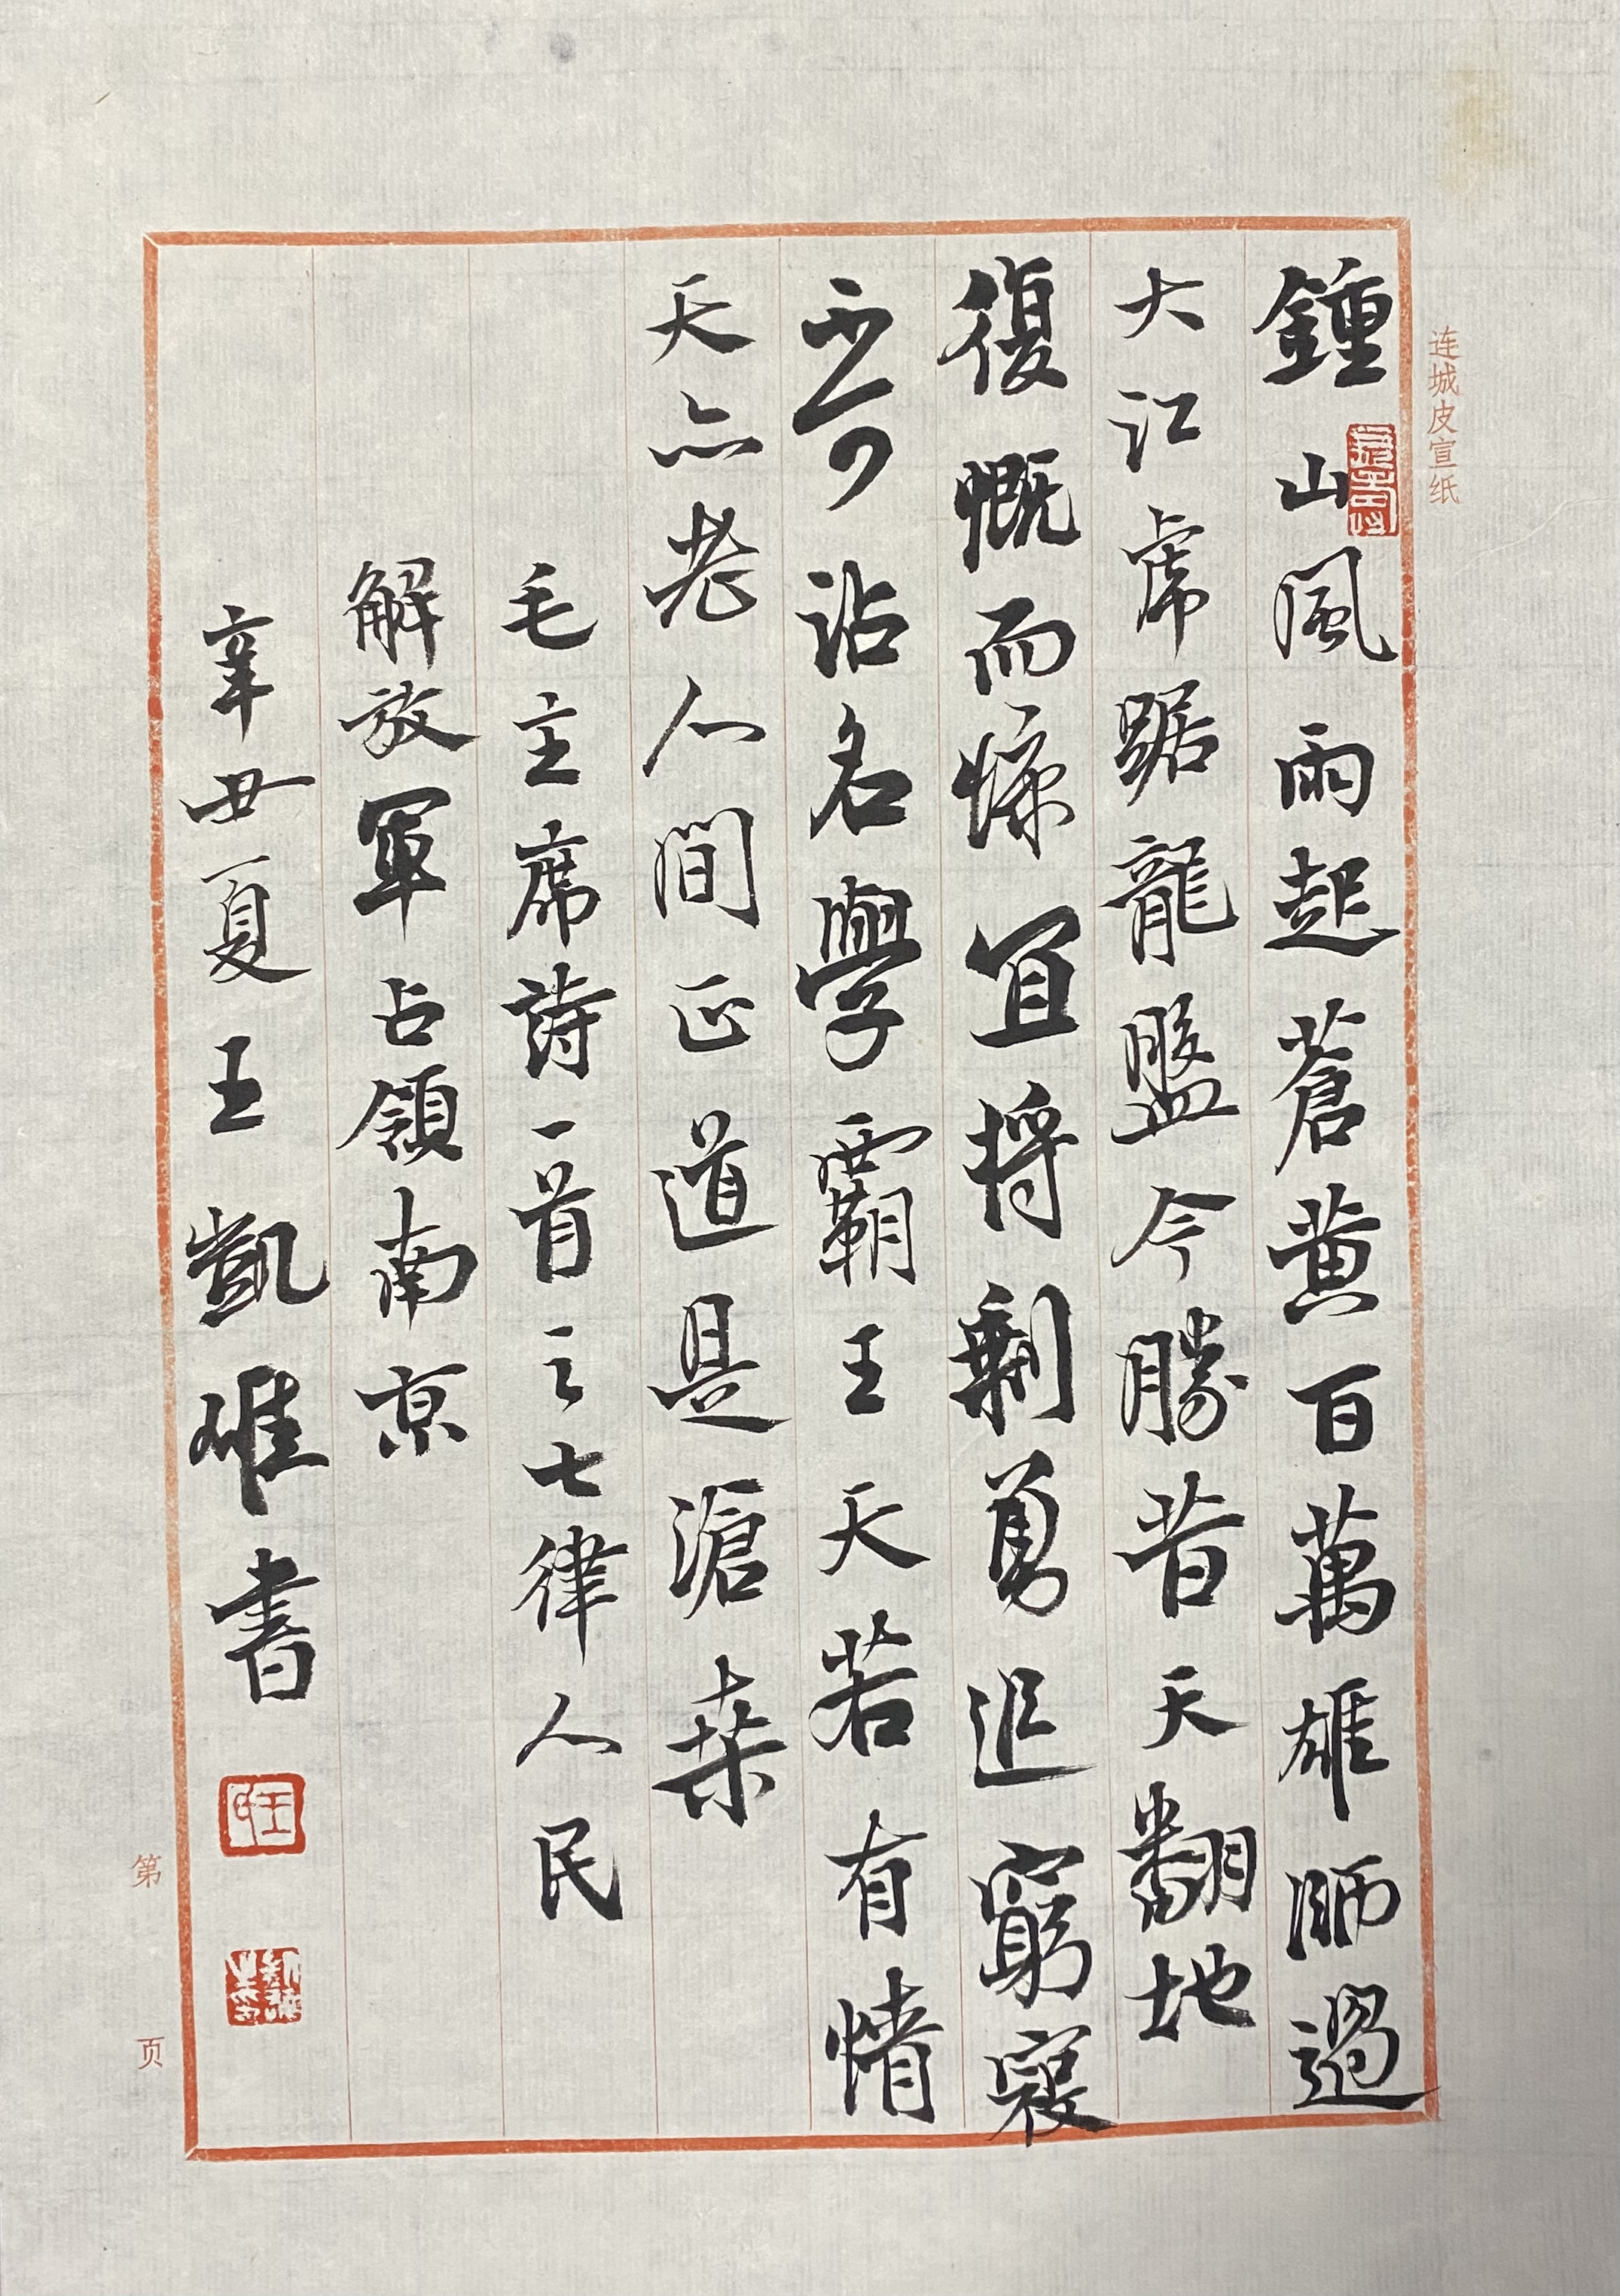 连城皮宣纸
鍾山風雨起蒼黄百萬雄師過
大江虎踞龍盤今勝昔天翻地
復慨而慷宜将剩勇追窮寇
不可沽名學霸王天若有情
天亦老人間正道是滄桑
毛主席詩一首之七律人民
解放軍占領南京
辛丑夏王凱唯書
第 页